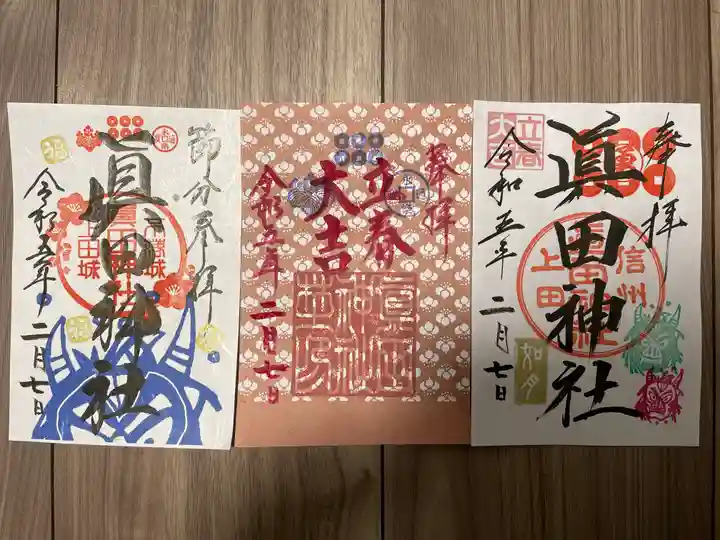 節分奉拝
眞田神社
上田城
令和五年二月七日
奉拝
立春
大吉
眞田神社
令和五年二月七日
奉拝
眞田神社
信州
上田
眞田神社
立春
大吉
令和五年二月七日
如月